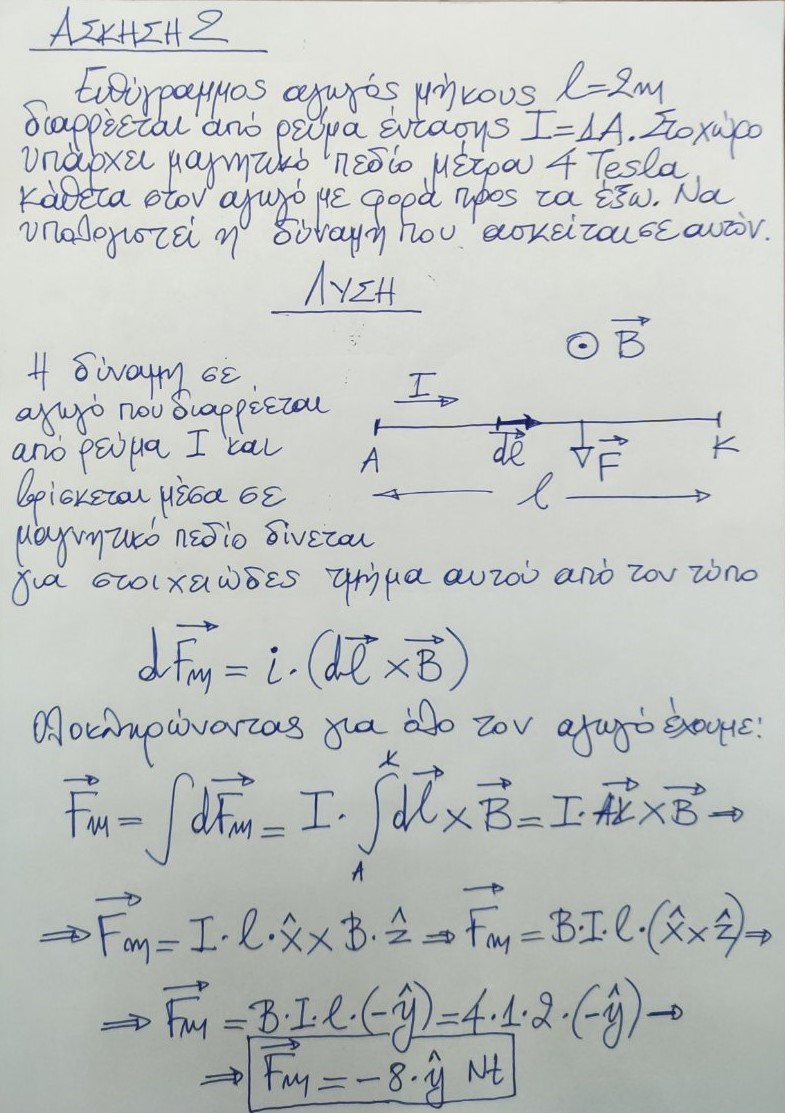 ΑΣΚΗΣΗ 2
Ευθύγραμμος αγωγός μήκους l=2m
διαρρέεται από ρεύμα έντασης I=1A. Στο χώρο
υπάρχει μαγνητικό πεδίο μέτρου 4 Tesla
κάθετα στον αγωγό με φορά προς τα έξω. Να
υπολογιστεί η δύναμη που ασκείται σε αυτόν.
ΛΥΣΗ
Η δύναμη σε
αγωγό που διαρρέεται
από ρεύμα I και
βρίσκεται μέσα σε
μαγνητικό πεδίο δίνεται
για στοιχειώδες τμήμα αυτού από τον τύπο
⊙ B⃗
I
A dl⃗ F⃗ K
l
dF⃗m = i·(dl⃗ × B⃗)
Ολοκληρώνοντας για όλο τον αγωγό έχουμε:
F⃗m = ∫dF⃗m = I·∫_A^K dl⃗ × B⃗ = I·AK⃗ × B⃗ ⇒
⇒ F⃗m = I·l·x̂ × B·ẑ ⇒ F⃗m = B·I·l·(x̂ × ẑ) ⇒
⇒ F⃗m = B·I·l·(-ŷ) = 4·1·2·(-ŷ) ⇒
⇒ F⃗m = -8·ŷ Nt